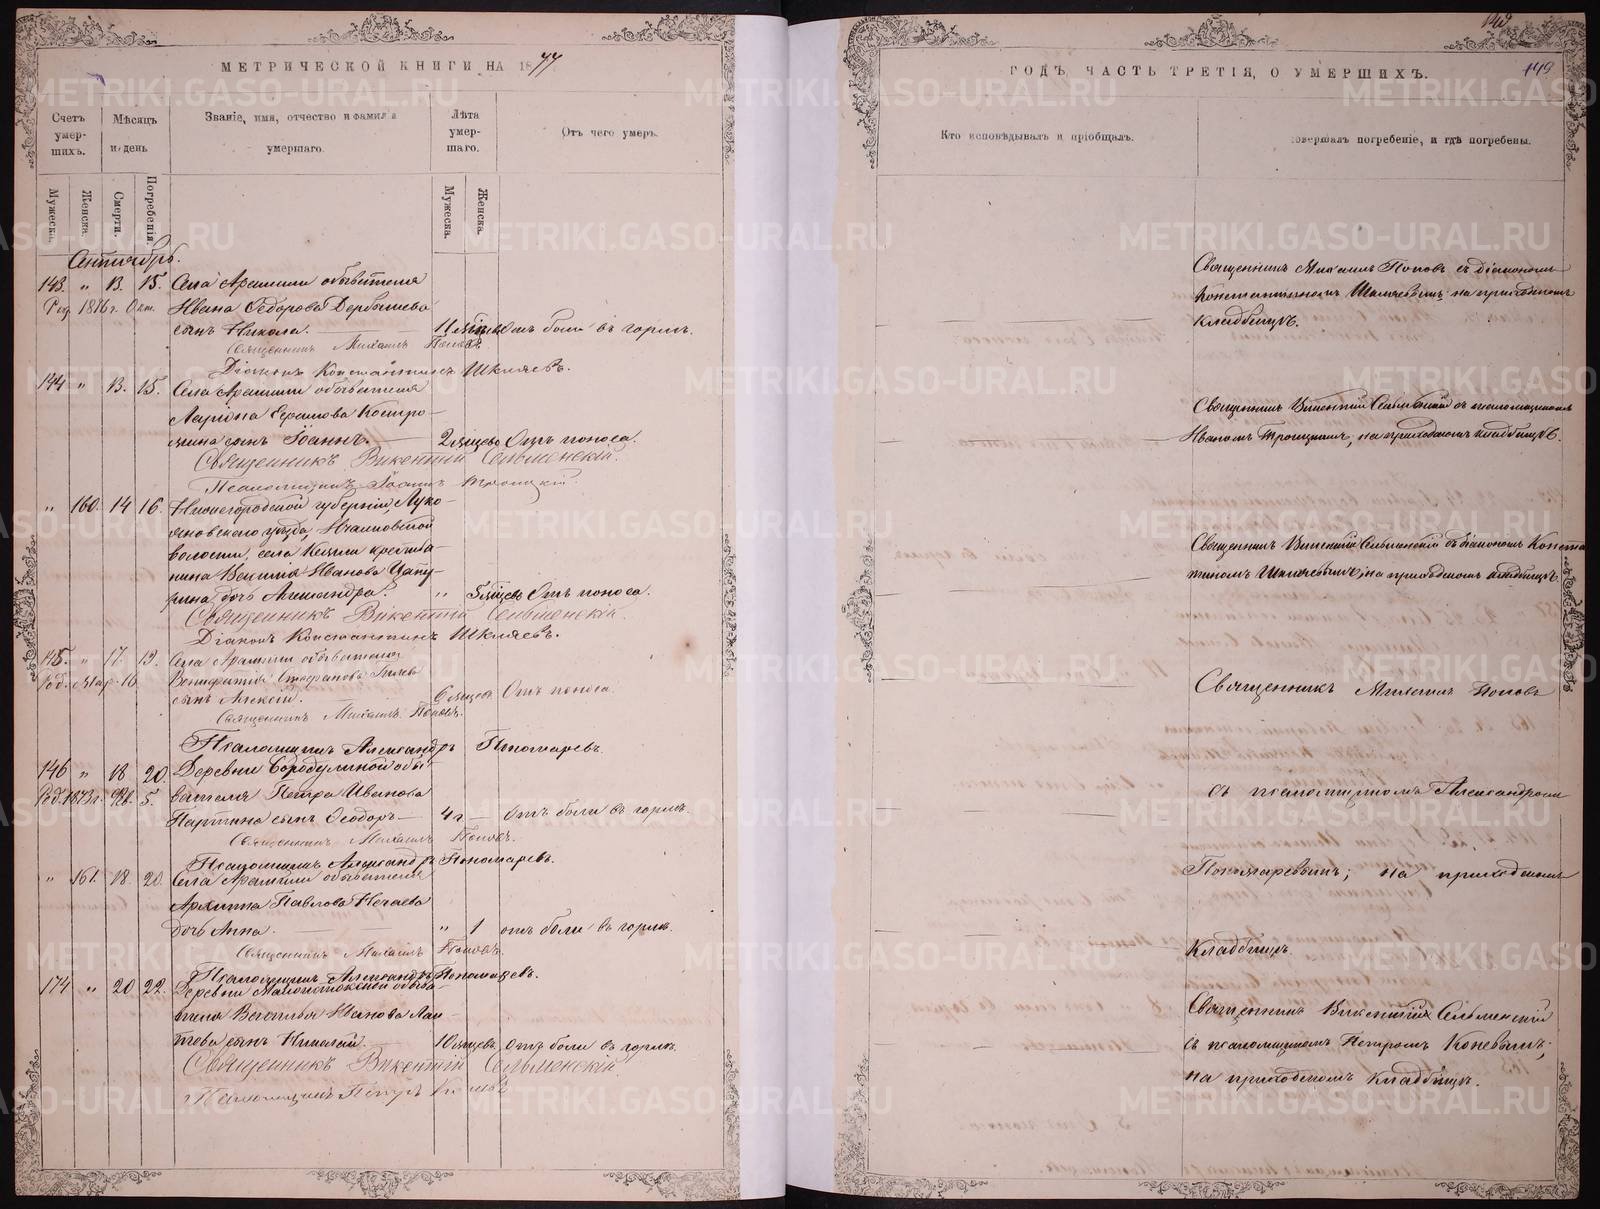 МЕТРИЧЕСКОЙ КНИГИ НА 1877
Счетъ умер-шихъ.
Мѣсяцъ и день
Званіе, имя, отчество и фамилія умершаго.
Лѣта умер-шаго.
Отъ чего умеръ.
Мужеска.
Женска.
Смерти.
Погребенія.
Мужеска.
Женска.
Сентябрь.
143. " 13. 15. Села Арамили обывателя
Род. 1876 г. Окт. Ивана Ѳедорова Дербышева
сынъ Никола. 11 мѣсяц. Отъ боли въ горлѣ.
Священникъ Михаилъ Поповъ.
Діаконъ Константинъ Шкляевъ.
144 " 13. 15. Села Арамили обывателя
Ларіона Ефимова Костро-
мина сынъ Іоаннъ. 2 мѣсяцевъ Отъ поноса.
Священникъ Викентій Сельменскій.
Псаломщикъ Іоаннъ Троицкій.
" 160. 14 16. Нижегородской губерніи, Луко-
яновскаго уѣзда,
волости, села крестья-
нина Василія Иванова
дочь Александра. " 5 мѣсяцевъ Отъ поноса.
Священникъ Викентій Сельменскій.
Діаконъ Константинъ Шкляевъ.
145. " 17. 19. Села Арамили обывателя
Род. Мар. 16 Вонифатія Стефанова
сынъ Алексій. 6 мѣсяцевъ Отъ поноса.
Священникъ Михаилъ Поповъ.
Псаломщикъ Александръ Пономаревъ.
146 " 18 20. Деревни Бородулиной обы-
Род. 1873 г. Фев. 5. вателя Петра Иванова
сынъ Ѳеодоръ 4 г. Отъ боли въ горлѣ.
Священникъ Михаилъ Поповъ.
Псаломщикъ Александръ Пономаревъ.
" 161. 18. 20. Села Арамили обывателя
Архипа Павлова Нечаева
дочь Анна. " 1 отъ боли въ горлѣ.
Священникъ Михаилъ Поповъ.
Псаломщикъ Александръ Пономаревъ.
174 " 20 22. Деревни Малоистокской обыва-
теля Василья Иванова Лап-
тева сынъ Николай. 10 мѣсяцевъ. Отъ боли въ горлѣ.
Священникъ Викентій Сельменскій
Псаломщикъ Петръ
149
ГОДЪ, ЧАСТЬ ТРЕТІЯ, О УМЕРШИХЪ.
Кто исповѣдывалъ и пріобщалъ.
совершалъ погребеніе, и гдѣ погребены.
Священникъ Михаилъ Поповъ съ діакономъ
Константиномъ Шкляевымъ на приходскомъ
кладбищѣ.
Священникъ Викентій Сельменскій съ псаломщикомъ
Иваномъ Троицкимъ, на приходскомъ кладбищѣ.
Священникъ Викентій Сельменскій съ діакономъ Конста
тиномъ Шкляевымъ, на приходскомъ кладбищѣ.
Священникъ Михаилъ Поповъ
съ псаломщикомъ Александромъ
Пономаревымъ; на приходскомъ
кладбищѣ.
Священникъ Викентій Сельменскій
съ псаломщикомъ Петромъ Коневымъ;
на приходскомъ кладбищѣ.
METRIKI.GASO-URAL.RU